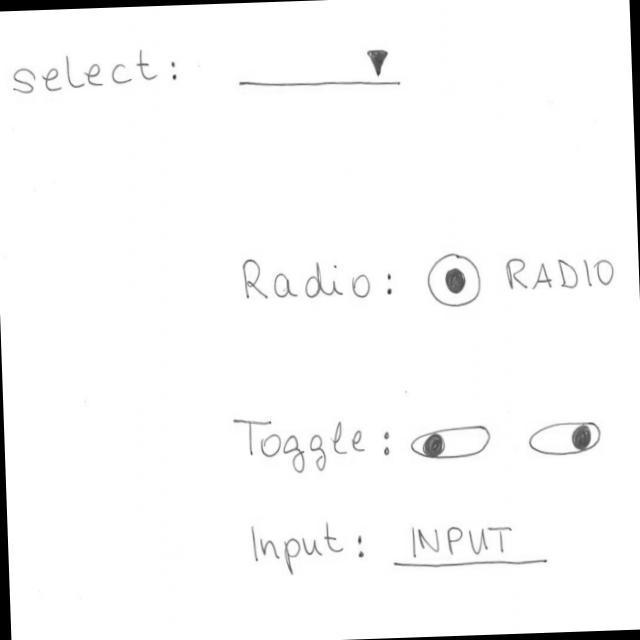 select:
Radio: RADIO
Toggle:
Input: INPUT